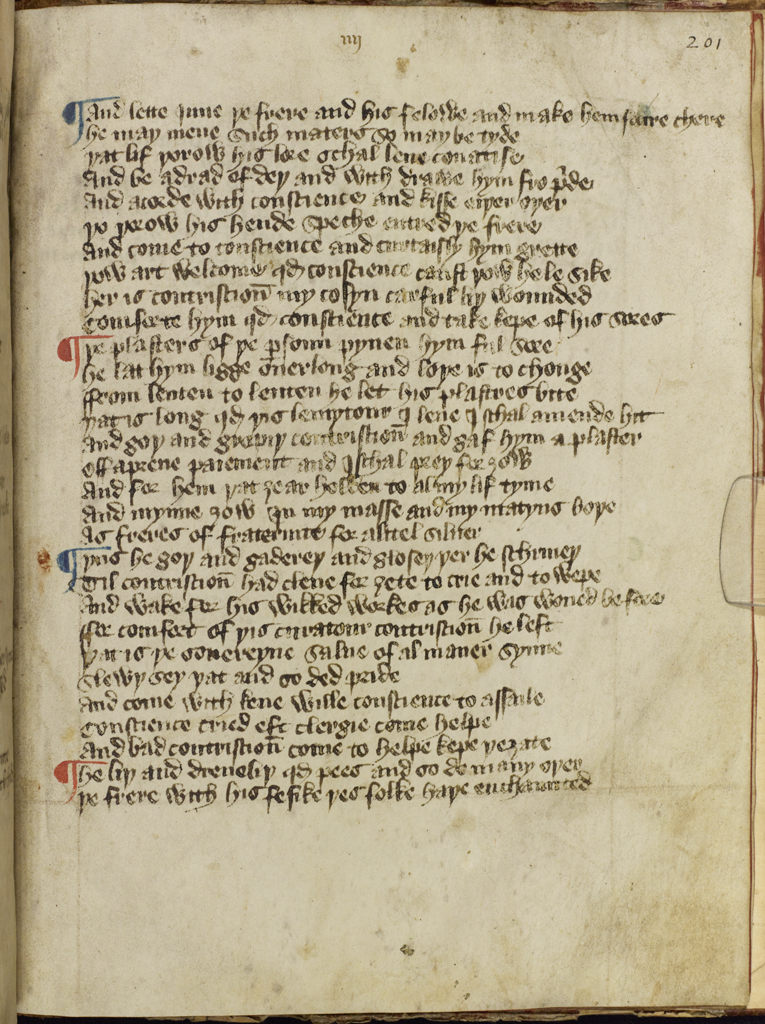 iiij
201
¶ And lette june þe frere and his felowe and make hem faire chere
he may meue such maters so may be tyde
þat lif þorow his lore schal leue coua̅tise
And be adrad of deþ and with drawe hym fro p̄de
And acorde with conscience and kisse eiþer oþer
þo þorow his hende speche entred þe frere
And come to conscience and curtaisly hym grette
þow art welcome qd conscience canst þow hele sike
her is contristion̄ my cosyn carful liþ wounded
Comforte hym qd conscience and take kepe of his sores
¶ þe plasters of þe ꝑsoun pynen hym ful sore
he lat hym ligge ouerlong and loþe is to chonge
ffrom lenten to lenten he let his plastres bite
þat is long qd þis lemytour I leue I schal amende hit
And goþ and gropiþ contristion̄ and gaf hym a plaster
off apreue paiement and I schal prey for ȝow
And for hem þat ȝe ar holden to al my lif tyme
And mynne ȝow In my masse and my matyns boþe
As freres of fraternite for a litel siluer
¶ þus he goþ and gadereþ and gloseþ þer he schriueþ
Til contristion̄ had clene for ȝete to crie and to wepe
And wake for his wikked workes as he was woned before
ffor comfort of þis curatour contristion̄ he left
þat is þe souereyne salue of al maner synne
Slewþ sey þat and so ded pride
And come with kene wille conscience to assaile
Conscience cried eft clergie come helpe
And bad contristion̄ come to helpe kepe þe ȝate
¶ he liþ and dremeþ qd pees and so do many oþer
þe frere with his fesike þes folke haþe enchaunted